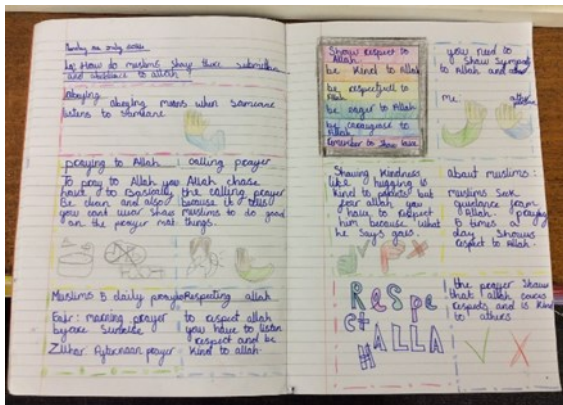 LO: How do muslims show there submission
and obedience to Allah
Obeying
obeying means when someone
listens to someone
praying to Allah
To pray to Allah you
have to Basically
Be clean and also
you cant wear shoes
on the prayer mat
calling prayer
Allah chose
the calling prayer
because it tells
muslims to do good
things.
Muslims 5 daily prayers
Fajr: morning prayer
before Sunrise
Zuhar: Afternoon prayer
Respecting allah
to respect allah
you have to listen
respect and be
kind to allah.
Show respect to
Allah.
be kind to Allah
be respectfull to
Allah
be eager to Allah
be courageous to
Allah
Remember to show love
you need to
Show Sympathy
to Allah and
me:
Showing kindness
like hugging is
kind to parents but
fear allah you
have to respect
him because what
he says goes.
about muslims:
muslims seek
guidance from
Allah. praying
5 times a
day Shows
respect to Allah.
ReSpe
ct
ALLA
H
the prayer Shows
that allah
respects and is kind
to others